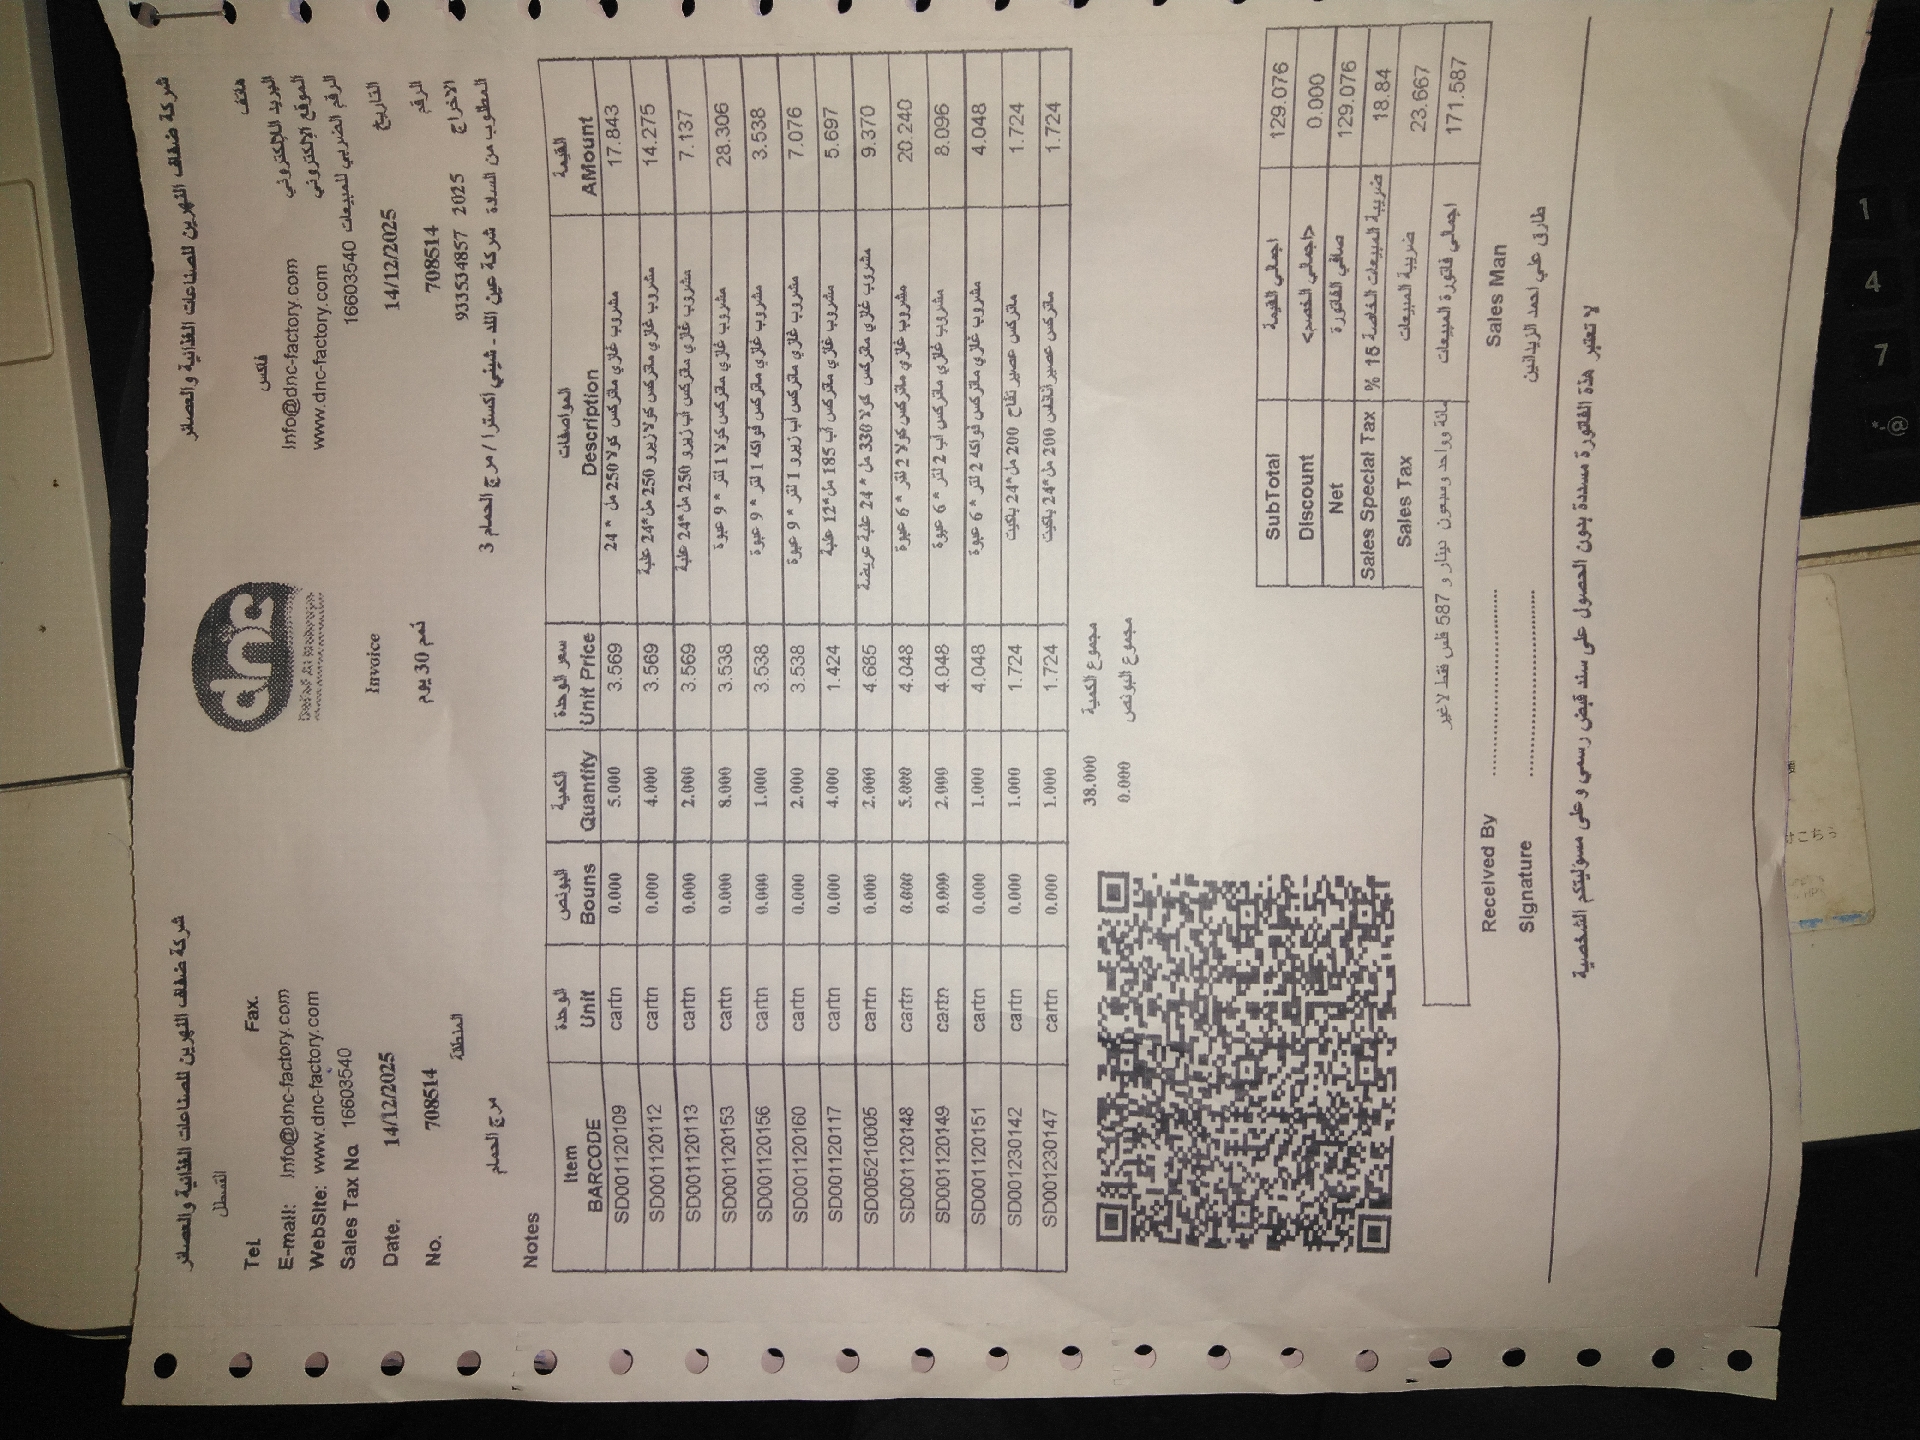 شركة ضفاف النهرين للصناعات الغذائية والعصائر
شركة ضفاف النهرين للصناعات الغذائية والعصائر
القسطل
dnc
Tel. Fax. فاكس هاتف
E-mail: Info@dnc-factory.com Info@dnc-factory.com البريد الالكتروني
WebSite: www.dnc-factory.com www.dnc-factory.com الموقع الإلكتروني
Sales Tax No. 16603540 16603540 الرقم الضريبي للمبيعات
Invoice
Date. 14/12/2025 14/12/2025 التاريخ
No. 708514 ذمم 30 يوم 708514 الرقم
المنطقة 933534857 2025 الاخراج
مرج الحمام المطلوب من السادة شركة عين اللد - شيني اكسترا / مرج الحمام 3
Notes
Item الوحدة البونص الكمية سعر الوحدة المواصفات القيمة
BARCODE Unit Bouns Quantity Unit Price Description AMount
SD001120109 cartn 0.000 5.000 3.569 مشروب غازي ماتركس كولا 250 مل * 24 17.843
SD001120112 cartn 0.000 4.000 3.569 مشروب غازي ماتركس كولا زيرو 250 مل*24 علبة 14.275
SD001120113 cartn 0.000 2.000 3.569 مشروب غازي ماتركس اب زيرو 250 مل*24 علبة 7.137
SD001120153 cartn 0.000 8.000 3.538 مشروب غازي ماتركس كولا 1 لتر * 9 عبوة 28.306
SD001120156 cartn 0.000 1.000 3.538 مشروب غازي ماتركس فواكه 1 لتر * 9 عبوة 3.538
SD001120160 cartn 0.000 2.000 3.538 مشروب غازي ماتركس اب زيرو 1 لتر * 9 عبوة 7.076
SD001120117 cartn 0.000 4.000 1.424 مشروب غازي ماتركس اب 185 مل*12 علبة 5.697
SD005210005 cartn 0.000 2.000 4.685 مشروب غازي ماتركس كولا 330 مل * 24 علبة عريضة 9.370
SD001120148 cartn 0.000 5.000 4.048 مشروب غازي ماتركس كولا 2 لتر * 6 عبوة 20.240
SD001120149 cartn 0.000 2.000 4.048 مشروب غازي ماتركس اب 2 لتر * 6 عبوة 8.096
SD001120151 cartn 0.000 1.000 4.048 مشروب غازي ماتركس فواكه 2 لتر * 6 عبوة 4.048
SD001230142 cartn 0.000 1.000 1.724 ماتركس عصير تفاح 200 مل*24 باكيت 1.724
SD001230147 cartn 0.000 1.000 1.724 ماتركس عصير اناناس 200 مل*24 باكيت 1.724
38.000 مجموع الكمية
0.000 مجموع البونص
SubTotal اجمالي القيمة 129.076
Discount <اجمالي الخصم> 0.000
Net صافي الفاتورة 129.076
Sales Special Tax ضريبة المبيعات الخاصة 15 % 18.84
Sales Tax ضريبة المبيعات 23.667
مائة وواحد وسبعون دينار و 587 فلس فقط لاغير اجمالي فاتورة المبيعات 171.587
Received By .............................. Sales Man
Signature .............................. طارق علي احمد الزيدانين
لا تعتبر هذة الفاتورة مسددة بدون الحصول على سند قبض رسمي و على مسوليتكم الشخصية
1
4
7
@